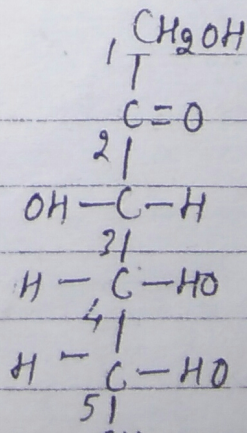 1 CH2OH
C=O
2
OH-C-H
3
H-C-HO
4
H-C-HO
5